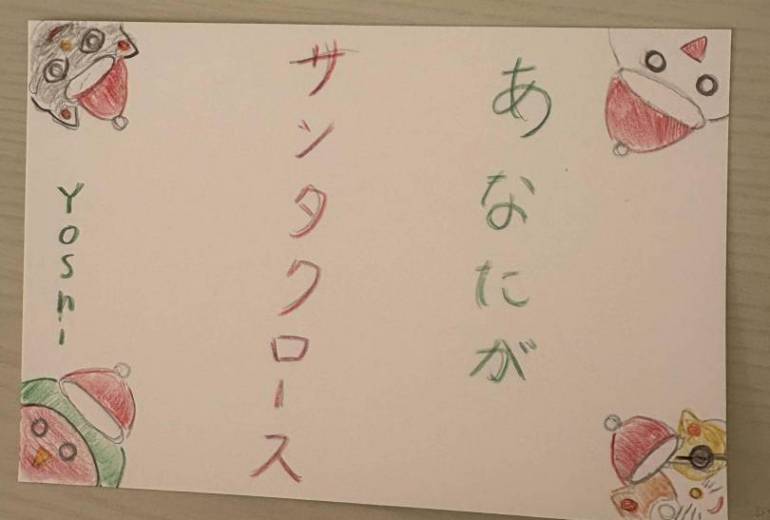 あなたが
サンタクロース
Yoshi